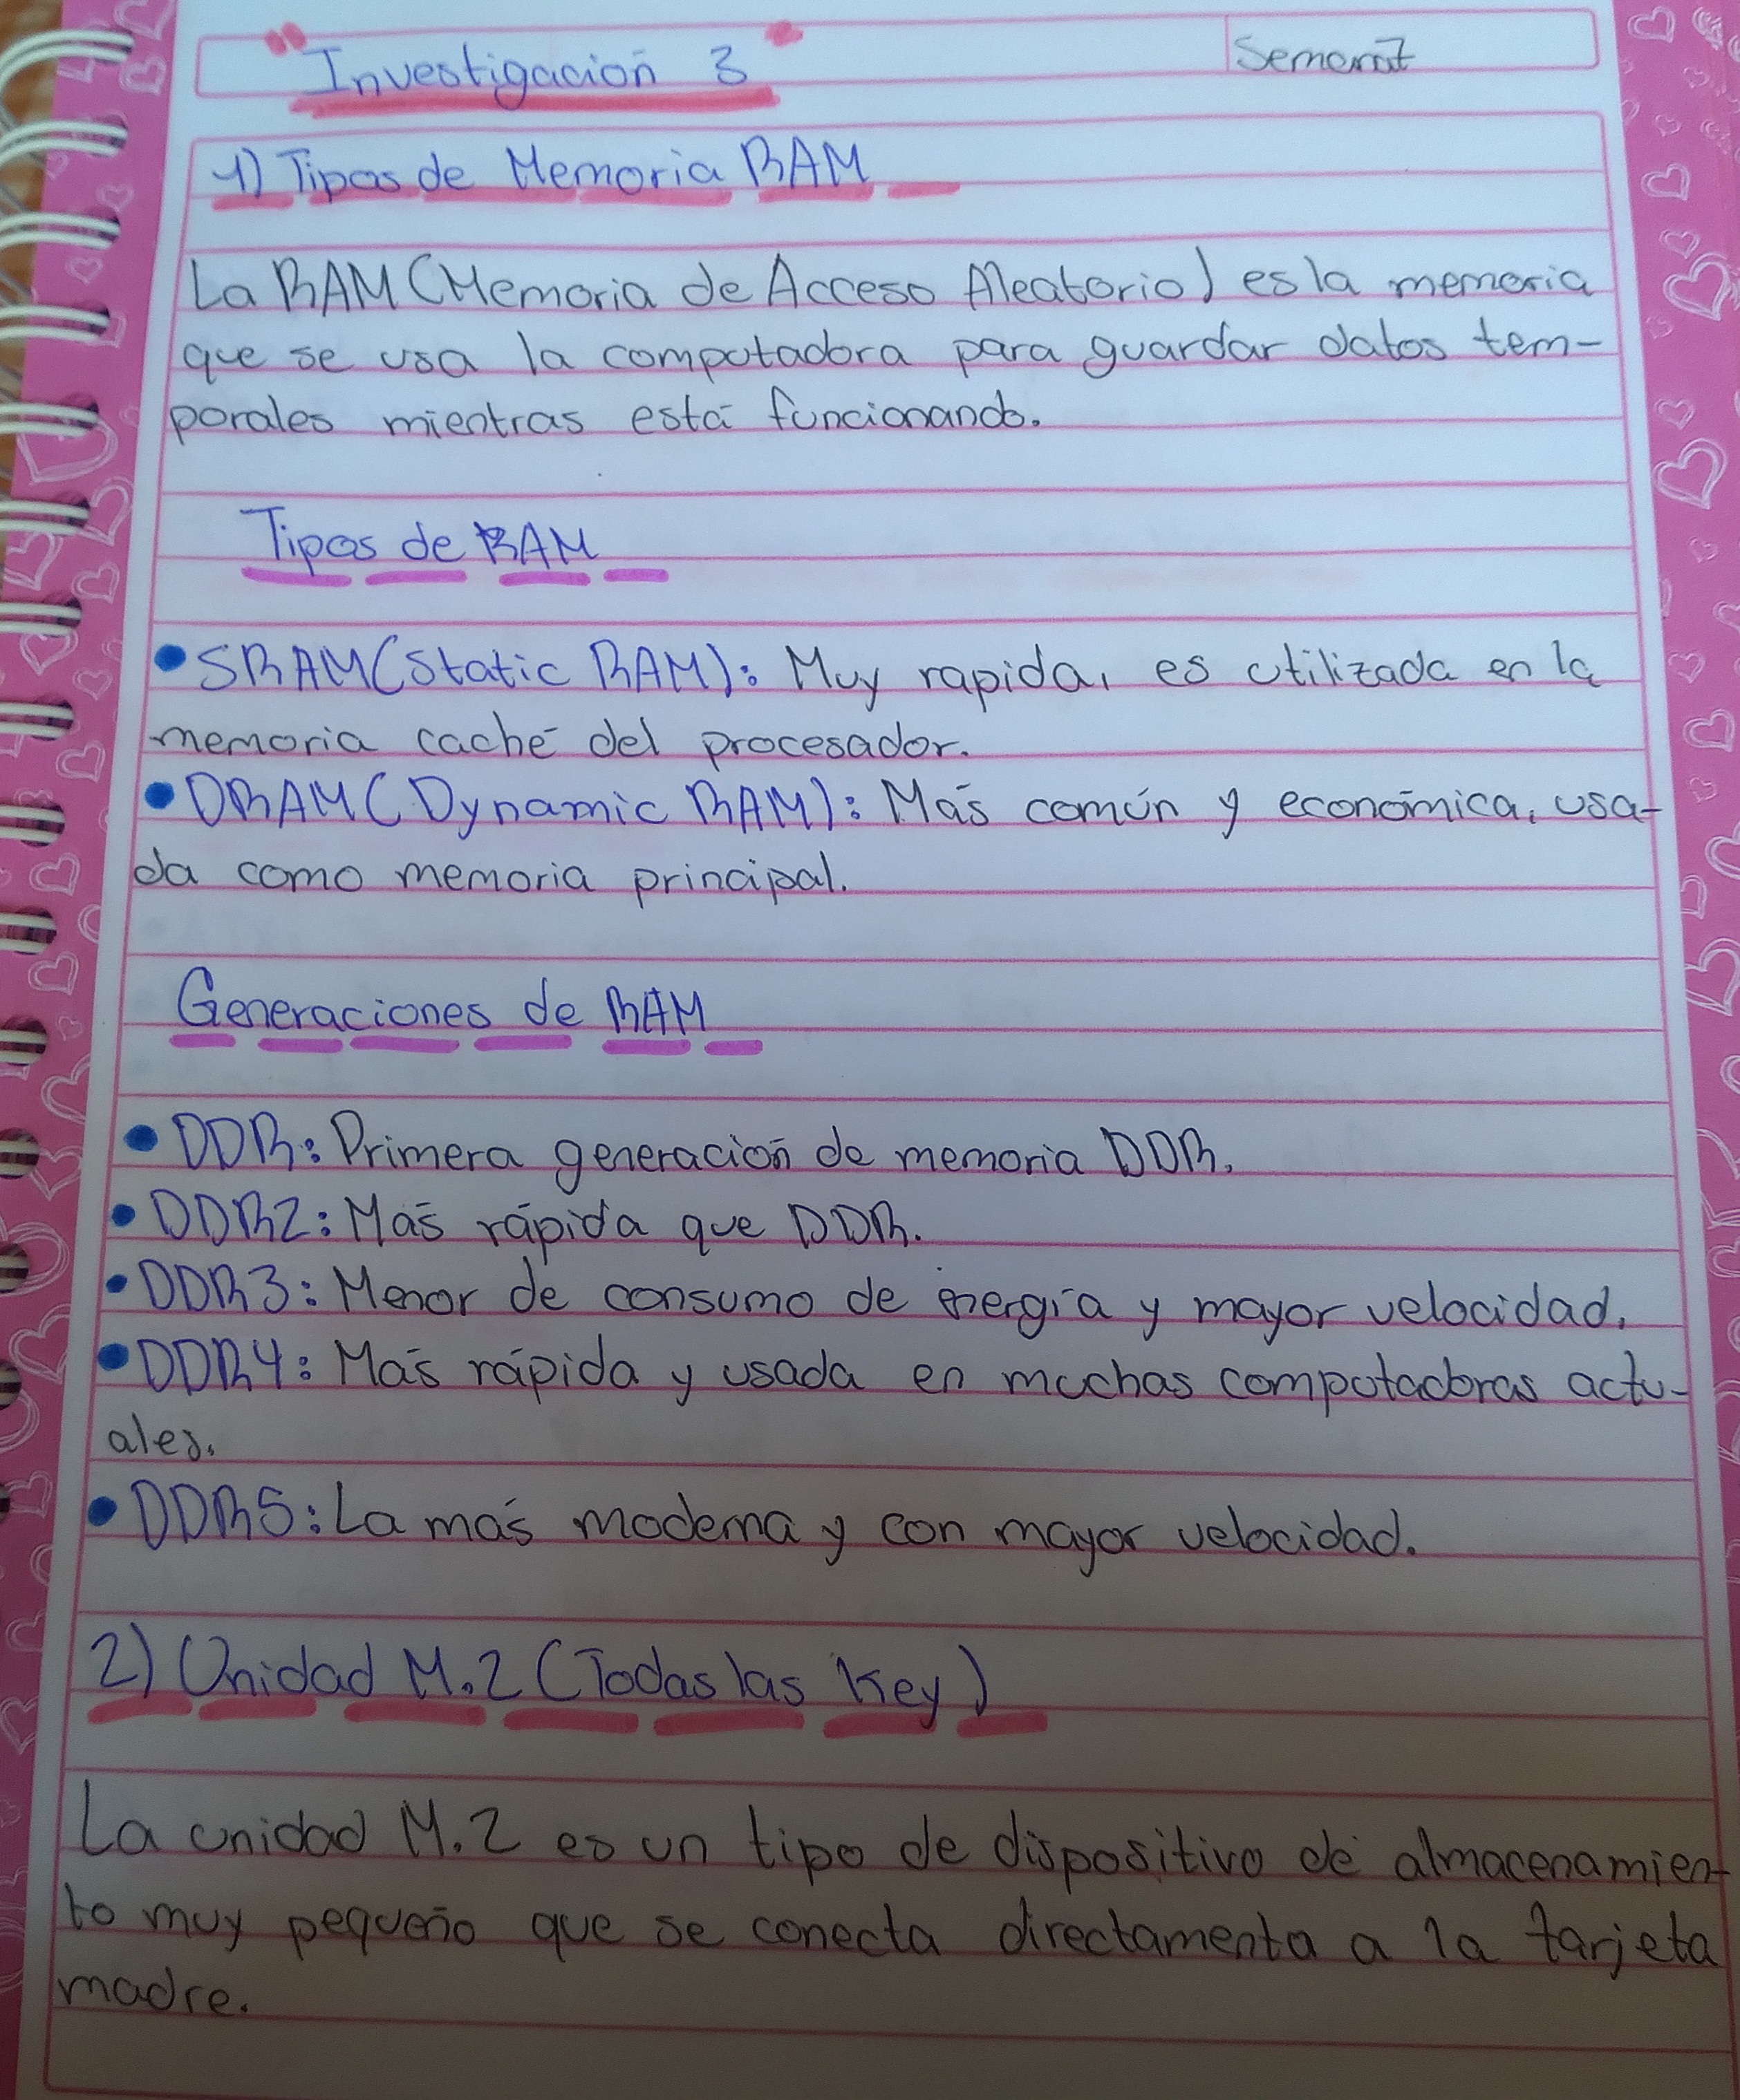 "Investigación 3"
Semana7
1) Tipos de Memoria RAM
La RAM (Memoria de Acceso Aleatorio) es la memoria
que se usa la computadora para guardar datos tem-
porales mientras está funcionando.
Tipos de RAM
• SRAM (Static RAM): Muy rapida, es utilizada en la
memoria caché del procesador.
• DRAM (Dynamic RAM): Más común y económica, usa-
da como memoria principal.
Generaciones de RAM
• DDR: Primera generación de memoria DDR.
• DDR2: Más rápida que DDR.
• DDR3: Menor de consumo de energía y mayor velocidad.
• DDR4: Más rápida y usada en muchas computadoras actu-
ales.
• DDR5: La más moderna y con mayor velocidad.
2) Unidad M.2 (Todas las Key)
La unidad M.2 es un tipo de dispositivo de almacenamien-
to muy pequeño que se conecta directamenta a la tarjeta
madre.